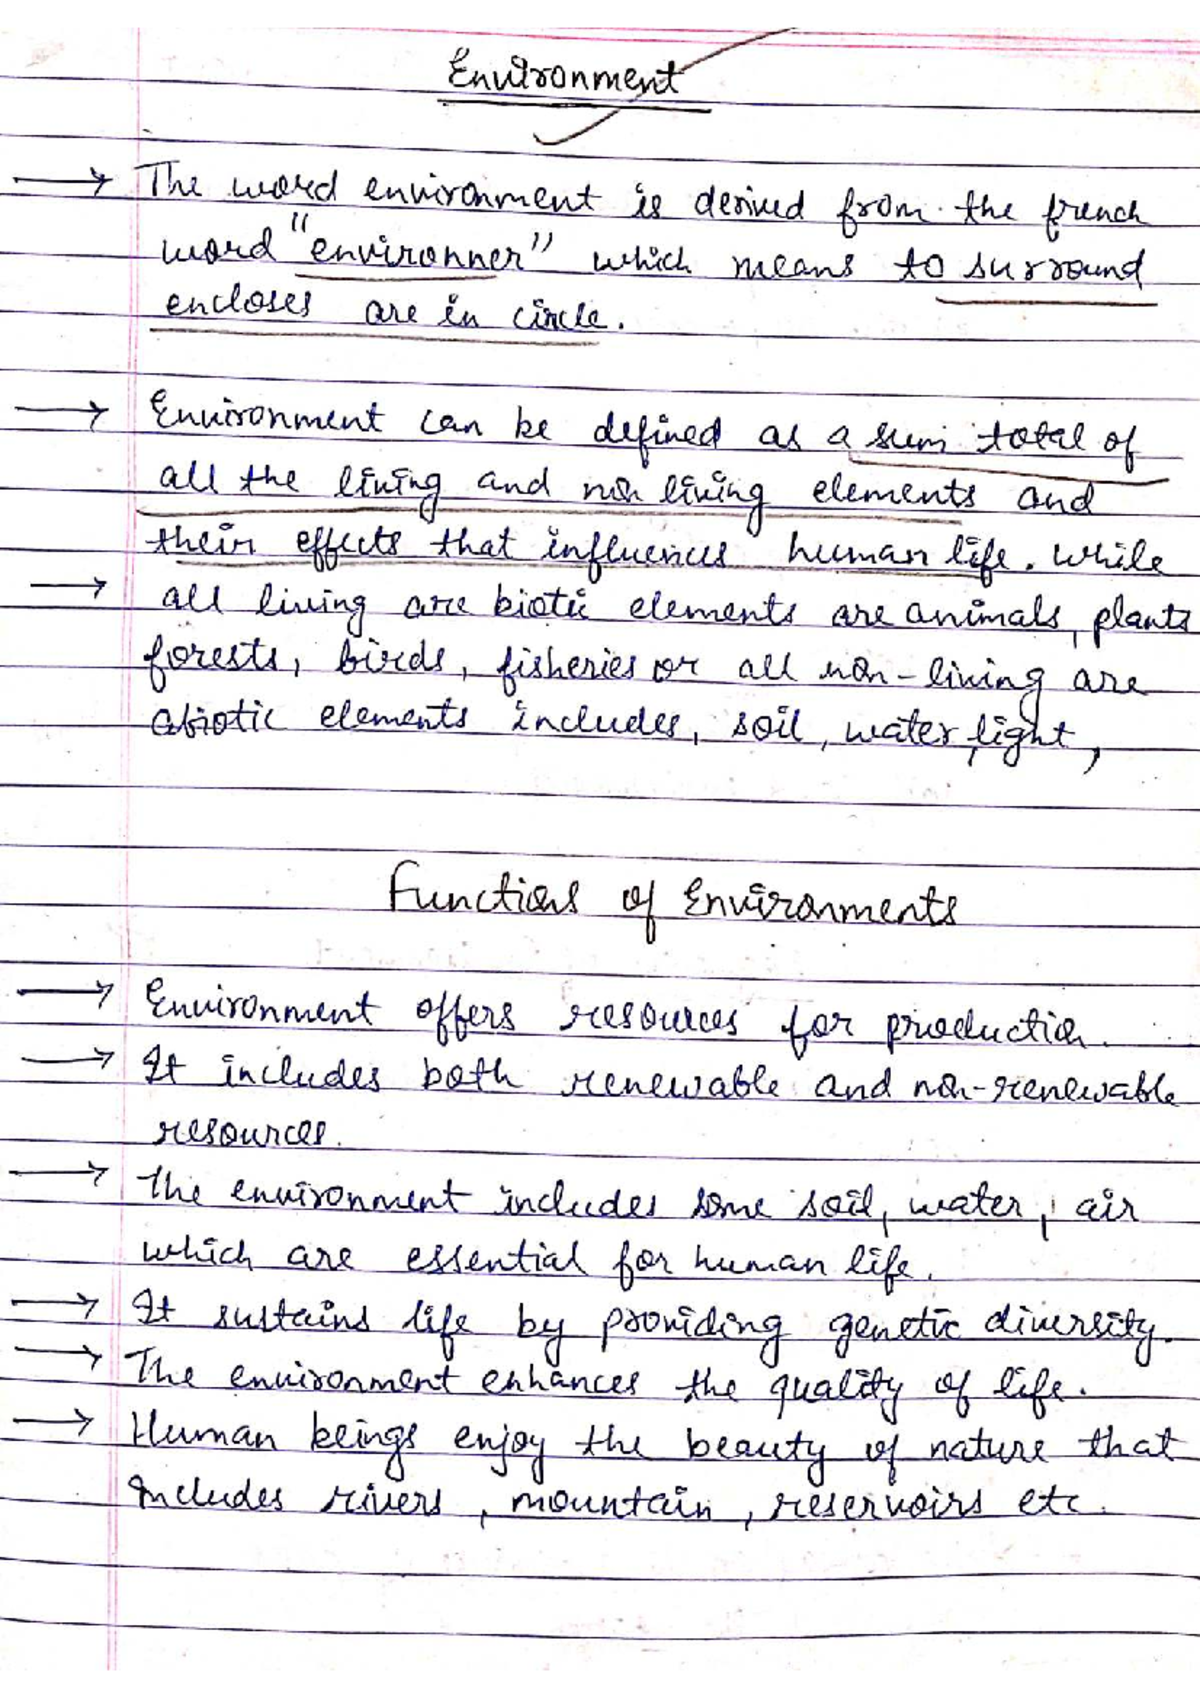 Environment
→ The word environment is derived from the french
word "environner" which means to surround
encloses are in circle.
→ Environment can be defined as a sum total of
all the living and non living elements and
their effects that influences human life. while
→ all living are biotic elements are animals, plants
forests, birds, fisheries or all non-living are
abiotic elements includes, soil, water, light,
Functions of Environments
→ Environment offers resources for production.
→ It includes both renewable and non-renewable
resources.
→ The environment includes some soil, water, air
which are essential for human life.
→ It sustains life by providing genetic diversity.
→ The environment enhances the quality of life.
→ Human beings enjoy the beauty of nature that
includes rivers, mountain, reservoirs etc.